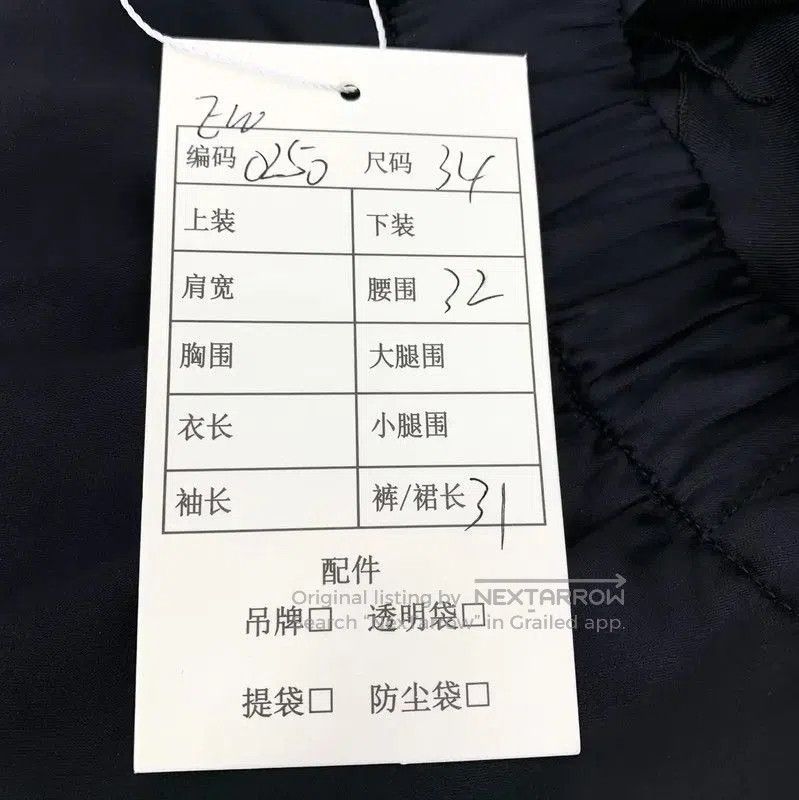 EW
编码 0250 尺码 34
上装 下装
肩宽 腰围 32
胸围 大腿围
衣长 小腿围
袖长 裤/裙长 31
配件
Original listing by NEXTARROW
吊牌□ 透明袋□
Search "Nextarrow" in Grailed app.
提袋□ 防尘袋□